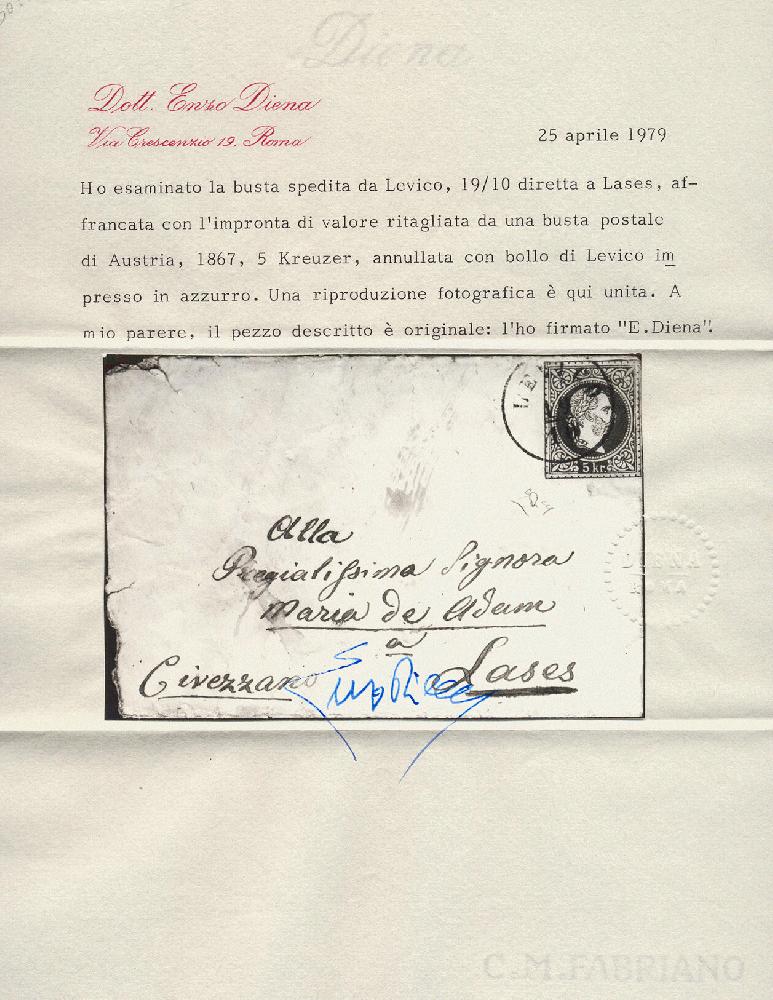 Diena
Dott. Enzo Diena
Via Crescenzio 19. Roma
25 aprile 1979
Ho esaminato la busta spedita da Levico, 19/10 diretta a Lases, af-
francata con l'impronta di valore ritagliata da una busta postale
di Austria, 1867, 5 Kreuzer, annullata con bollo di Levico im
presso in azzurro. Una riproduzione fotografica è qui unita. A
mio parere, il pezzo descritto è originale: l'ho firmato "E.Diena".
5 kr.
Alla
Pregiatissima Signora
Maria de Adam
a
Civezzano Lases
Enzo Diena
DIENA
ROMA
C.M.FABRIANO